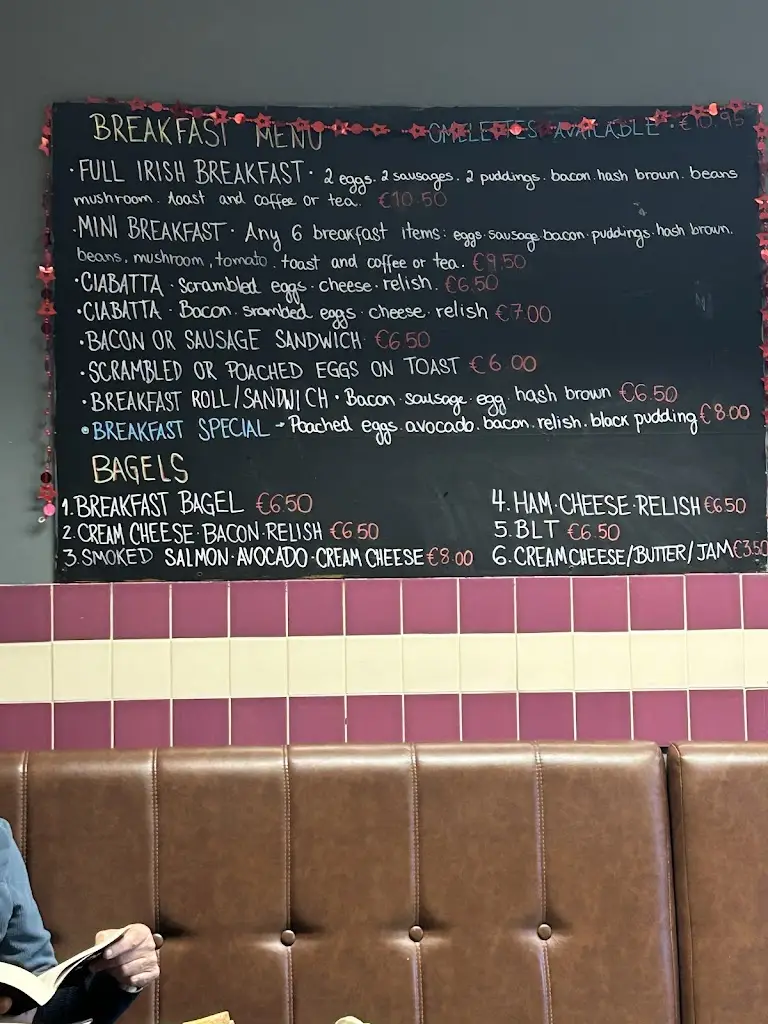 BREAKFAST MENU OMELETTES AVAILABLE · €10.95
· FULL IRISH BREAKFAST · 2 eggs. 2 sausages. 2 puddings. bacon. hash brown. beans
mushroom. toast and coffee or tea. €10.50
· MINI BREAKFAST · Any 6 breakfast items: eggs. sausage. bacon. puddings. hash brown.
beans, mushroom, tomato. toast and coffee or tea. €9,50
· CIABATTA · Scrambled eggs · cheese · relish. €6.50
· CIABATTA · Bacon. srambled eggs · cheese · relish €7.00
· BACON OR SAUSAGE SANDWICH €6.50
· SCRAMBLED OR POACHED EGGS ON TOAST €6.00
· BREAKFAST ROLL/SANDWICH · Bacon · sausage · egg. hash brown €6.50
• BREAKFAST SPECIAL → Poached eggs. avocado. bacon. relish. black pudding €8.00
BAGELS
1. BREAKFAST BAGEL €6.50
2. CREAM CHEESE · BACON · RELISH €6.50
3. SMOKED SALMON · AVOCADO · CREAM CHEESE €8.00
4. HAM · CHEESE · RELISH €6.50
5. BLT €6.50
6. CREAM CHEESE/BUTTER/JAM €3.50